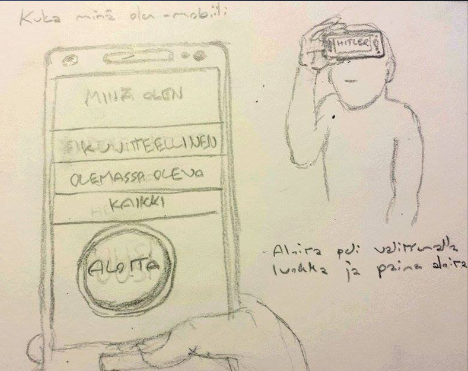 Kuka minä olen -mobiili
HITLER
MINÄ OLEN
KUVITTEELLINEN
OLEMASSA OLEVA
KAIKKI
ALOITA
- Aloita peli valitsemalla
luokka ja paina aloita